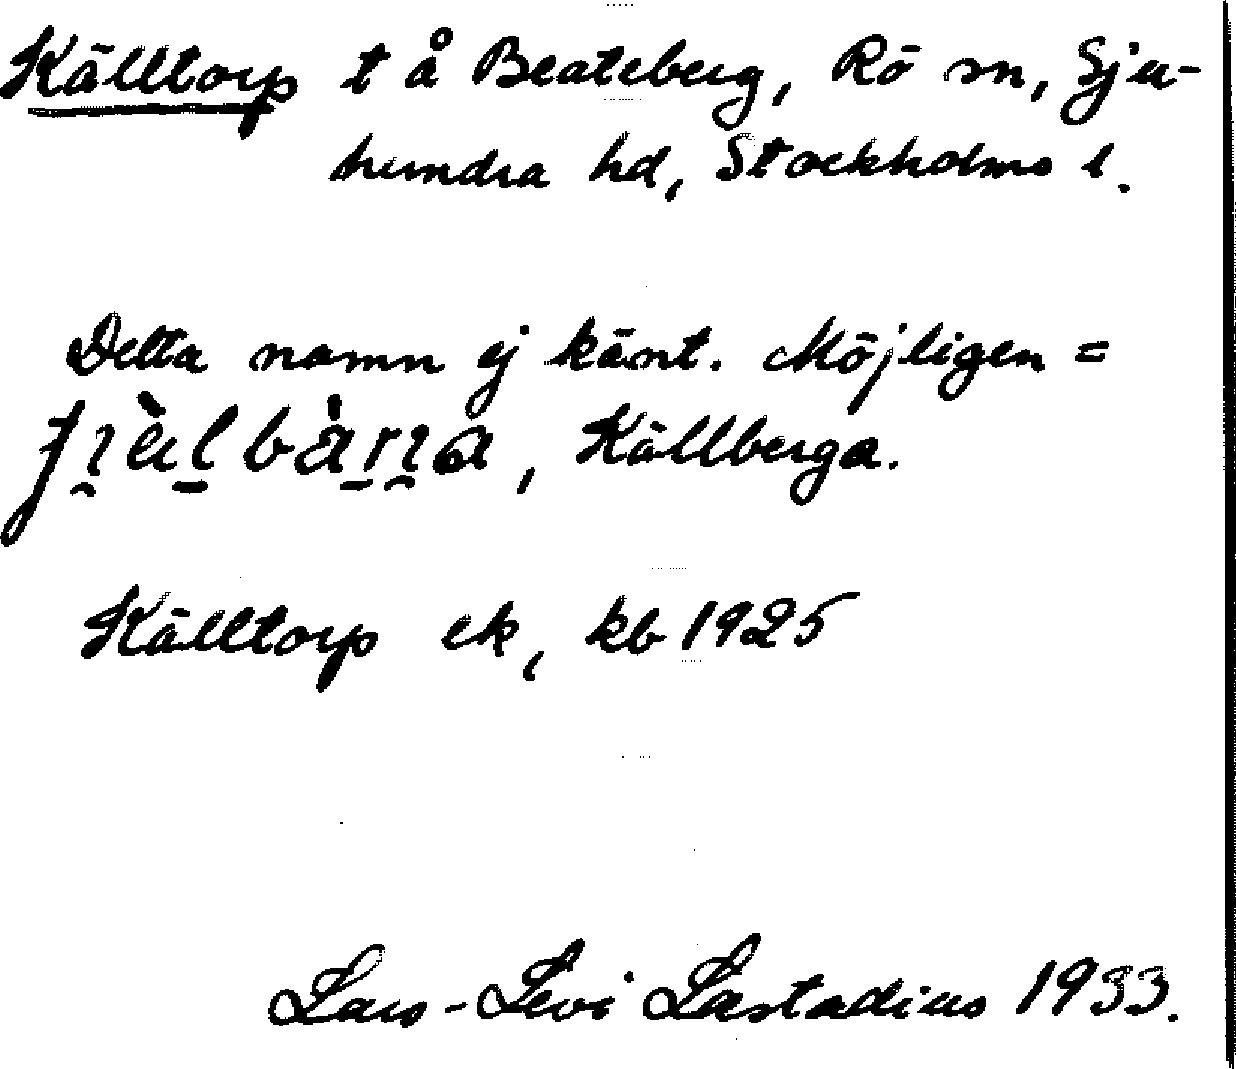 Källtorp t å Beateberg, Rö sn, Sju-
hundra hd, Stockholms l.
Detta namn ej känt. Möjligen =
, Källberga.
Källtorp ek, kb 1925
Lars-Levi Læstadius 1933.